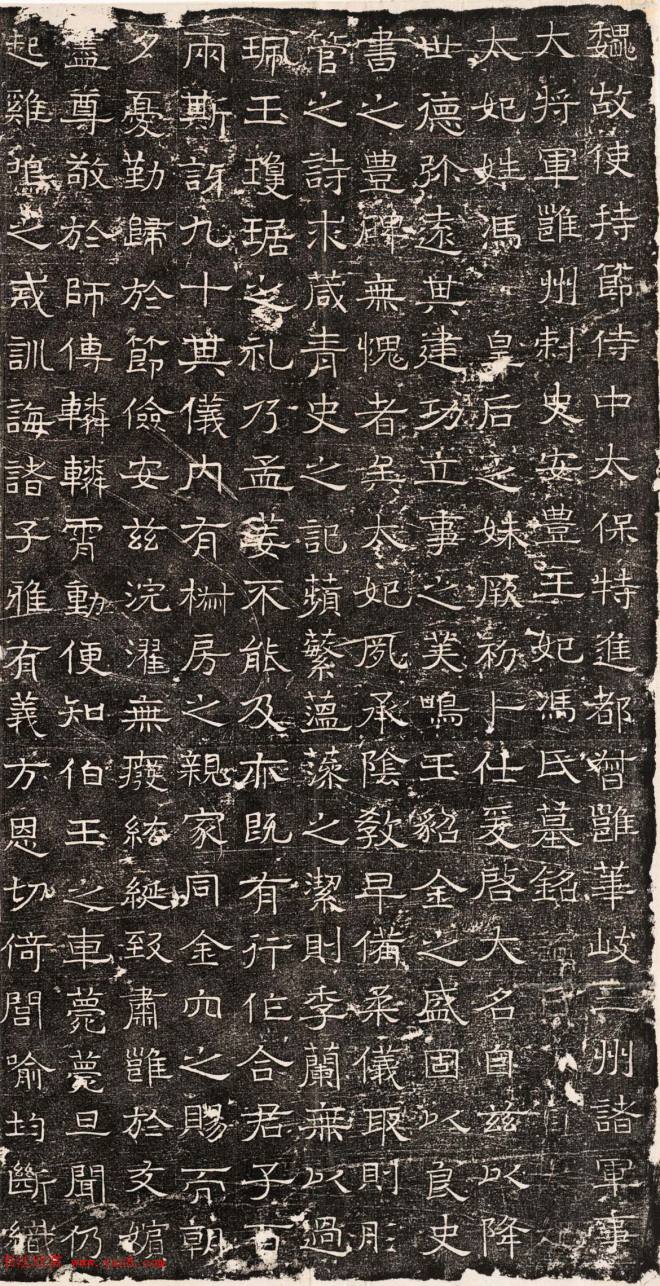 魏故使持節侍中太保特進都督雝華岐三州諸軍事
大將軍雝州刺史安豐王妃馮氏墓銘
太妃姓馮 皇后之妹厥初卜仕爰啓大名自兹以降
世德弥遠其建功立事之美鳴玉貂金之盛固以良史
書之豊碑無愧者矣太妃夙承陰教早備柔儀取則彤
管之詩求箴青史之記蘋蘩薀藻之潔則季蘭無以過
珮玉瓊琚之礼乃孟姜不能及亦既有行作合君子百
兩斯訝九十其儀内有椒房之親家同金穴之賜而朝
夕憂勤歸於節儉安兹浣濯無癈紘綖致肅雝於友媚
盡尊敬於師傅轔轔霄動便知伯玉之車薨薨旦聞仍
起雞鳴之戒訓誨諸子雅有義方恩切倚閭喻均斷織